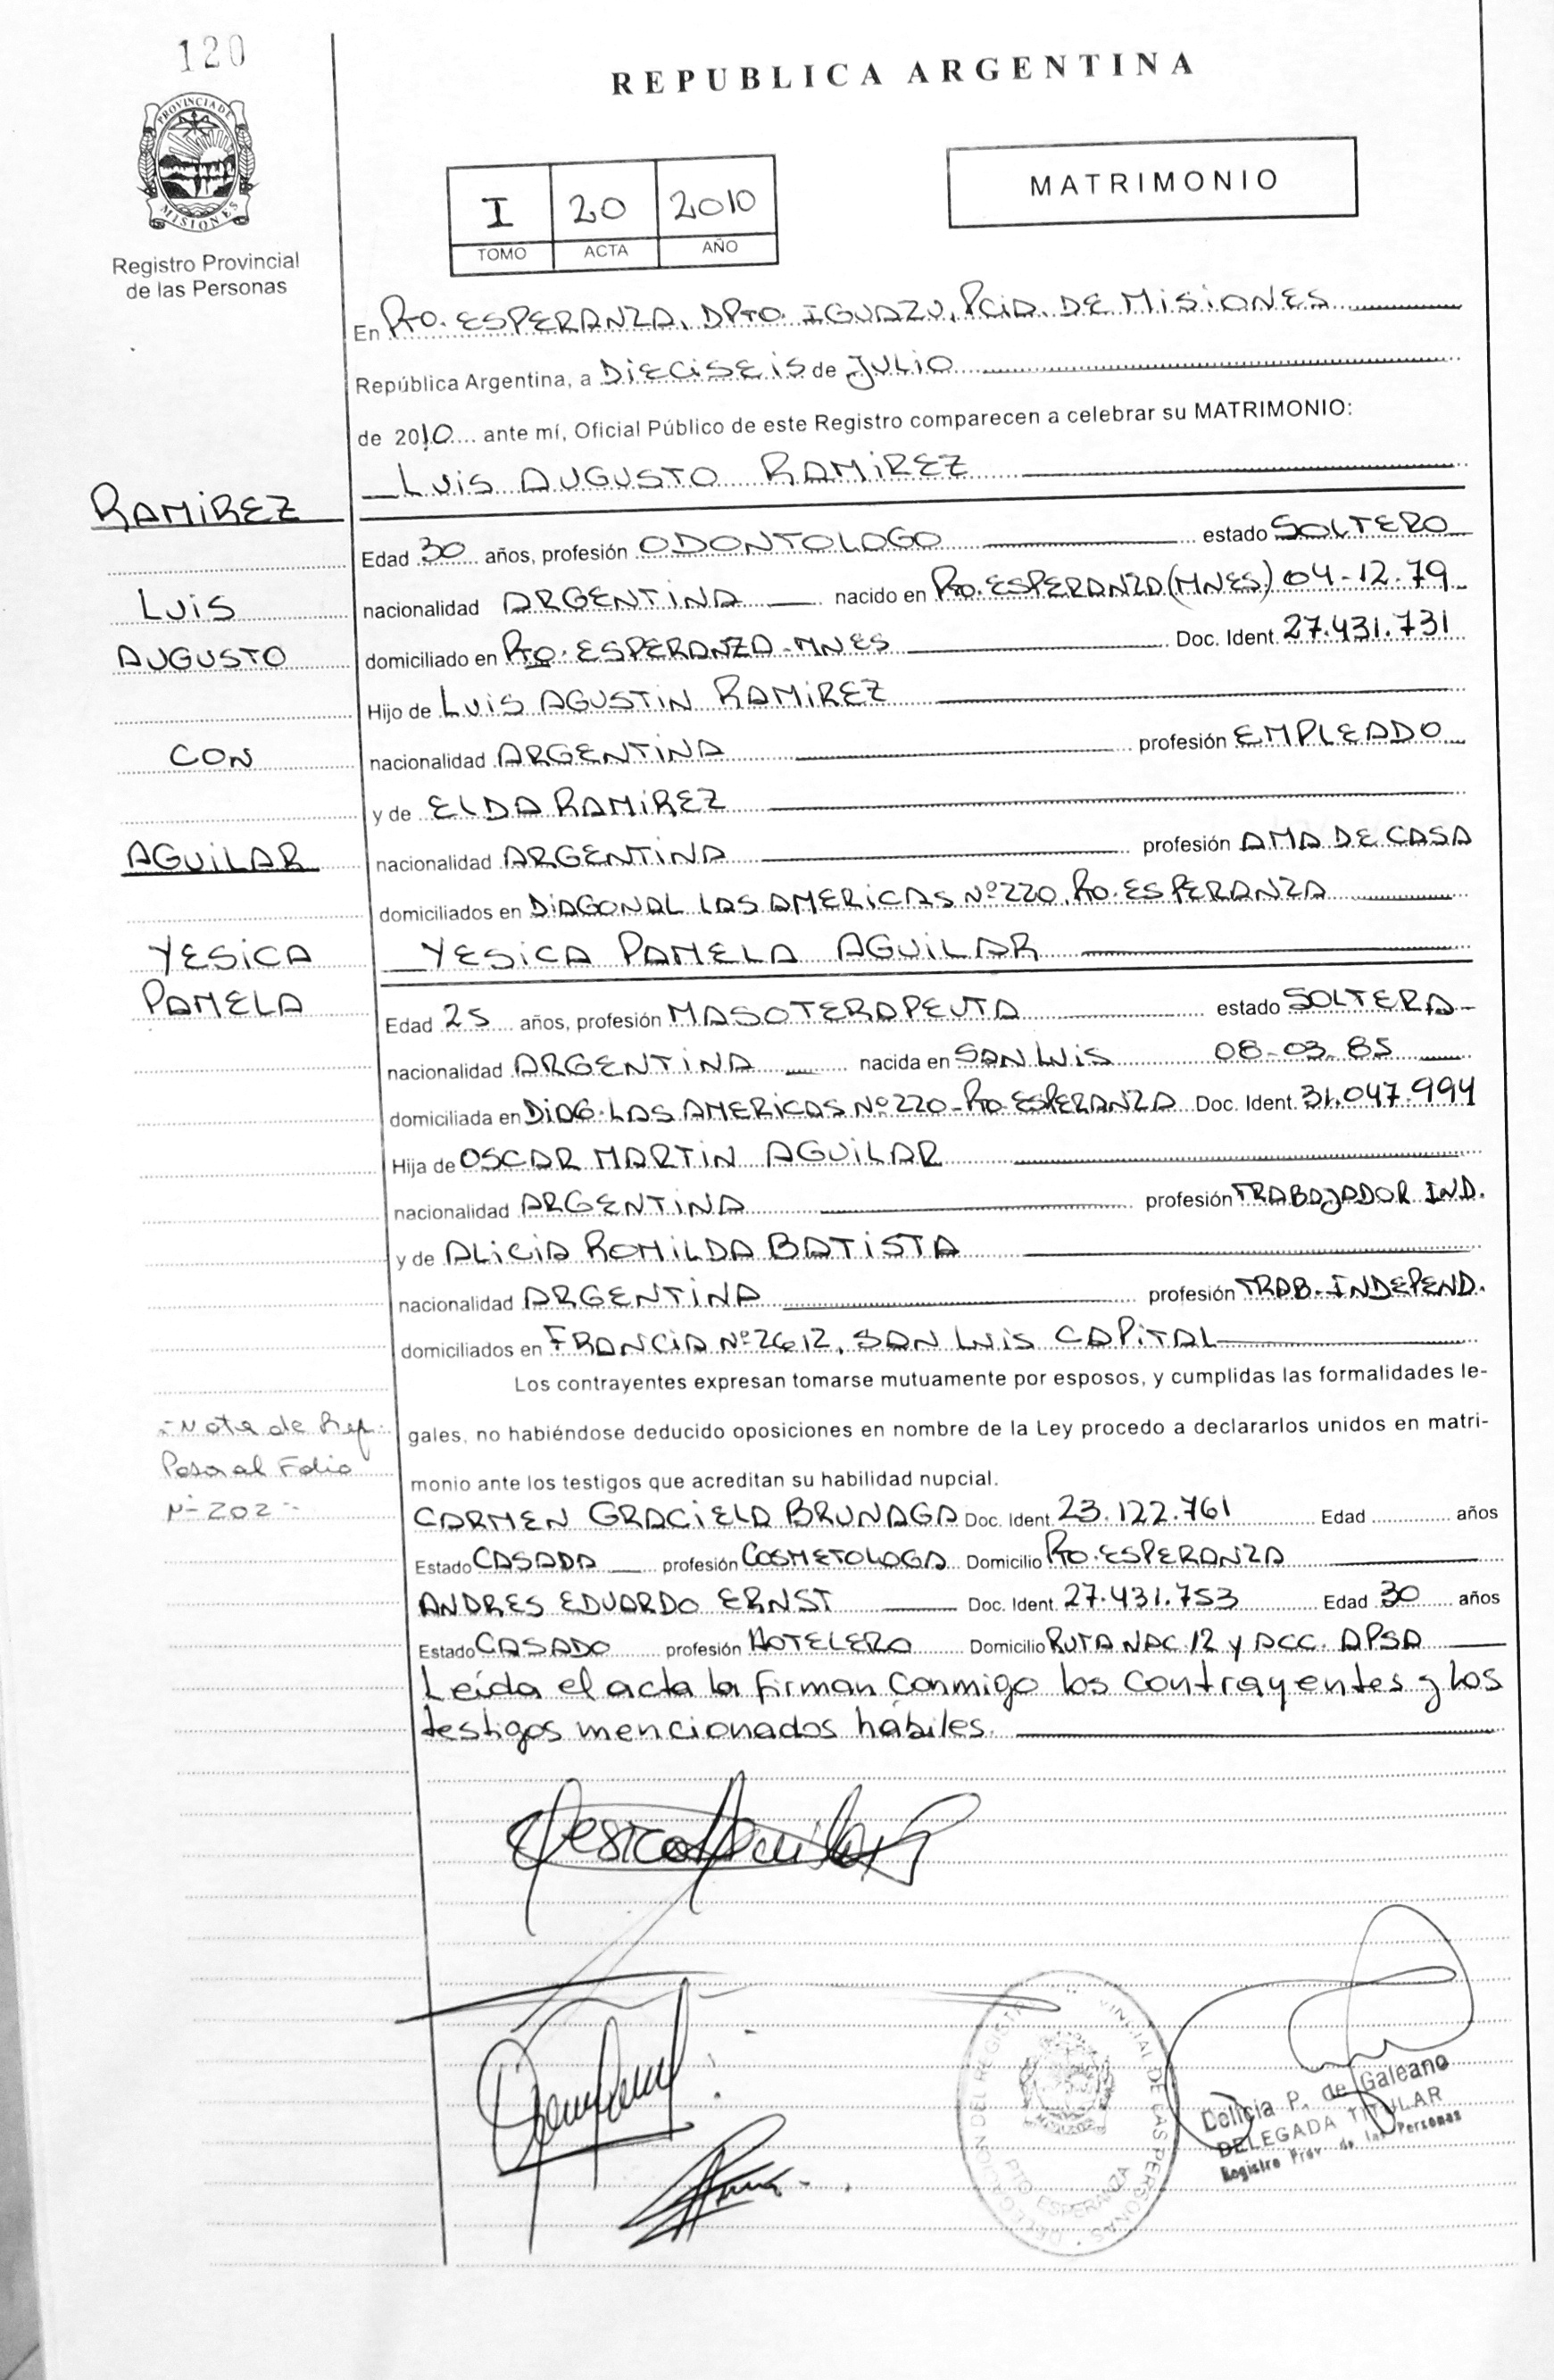 120
REPUBLICA ARGENTINA
PROVINCIA DE MISIONES
Registro Provincial
de las Personas
I 20 2010
TOMO ACTA AÑO
MATRIMONIO
En Pto. ESPERANZA, DPTO. IGUAZU, PCIA. DE MISIONES
República Argentina, a DIECISEIS de JULIO
de 2010 ante mí, Oficial Público de este Registro comparecen a celebrar su MATRIMONIO:
LUIS AUGUSTO RAMIREZ
RAMIREZ
Edad 30 años, profesión ODONTOLOGO estado SOLTERO
LUIS
nacionalidad ARGENTINA nacido en Pto. ESPERANZA (MNES) 04-12-79
AUGUSTO
domiciliado en Pto. ESPERANZA-MNES Doc. Ident. 27.431.731
Hijo de LUIS AGUSTIN RAMIREZ
CON
nacionalidad ARGENTINA profesión EMPLEADO
y de ELDA RAMIREZ
AGUILAR
nacionalidad ARGENTINA profesión AMA DE CASA
domiciliados en DIAGONAL LAS AMERICAS Nº220, Pto. ESPERANZA
YESICA
YESICA PAMELA AGUILAR
PAMELA
Edad 25 años, profesión MASOTERAPEUTA estado SOLTERA
nacionalidad ARGENTINA nacida en SAN LUIS 08-03-85
domiciliada en DIAG. LAS AMERICAS Nº220-Pto ESPERANZA Doc. Ident. 31.047.994
Hija de OSCAR MARTIN AGUILAR
nacionalidad ARGENTINA profesión TRABAJADOR IND.
y de ALICIA ROMILDA BATISTA
nacionalidad ARGENTINA profesión TRAB. INDEPEND.
domiciliados en FRANCIA Nº2612, SAN LUIS CAPITAL
Los contrayentes expresan tomarse mutuamente por esposos, y cumplidas las formalidades le-
gales, no habiéndose deducido oposiciones en nombre de la Ley procedo a declararlos unidos en matri-
monio ante los testigos que acreditan su habilidad nupcial.
-Nota de Ref.
Pasa al Folio
Nº 202-
CARMEN GRACIELA BRUNAGA Doc. Ident. 23.122.761 Edad años
Estado CASADA profesión COSMETOLOGA Domicilio Pto. ESPERANZA
ANDRES EDUARDO ERNST Doc. Ident. 27.431.753 Edad 30 años
Estado CASADO profesión HOTELERO Domicilio RUTA NAC. 12 y ACC. APSA
Leída el acta la firman conmigo los contrayentes y los
testigos mencionados hábiles.
Yesica Aguilar
DELEGACION DEL REGISTRO PROVINCIAL DE LAS PERSONAS
PTO ESPERANZA
Delicia P. de Galeano
DELEGADA TITULAR
Registro Prov. de las Personas